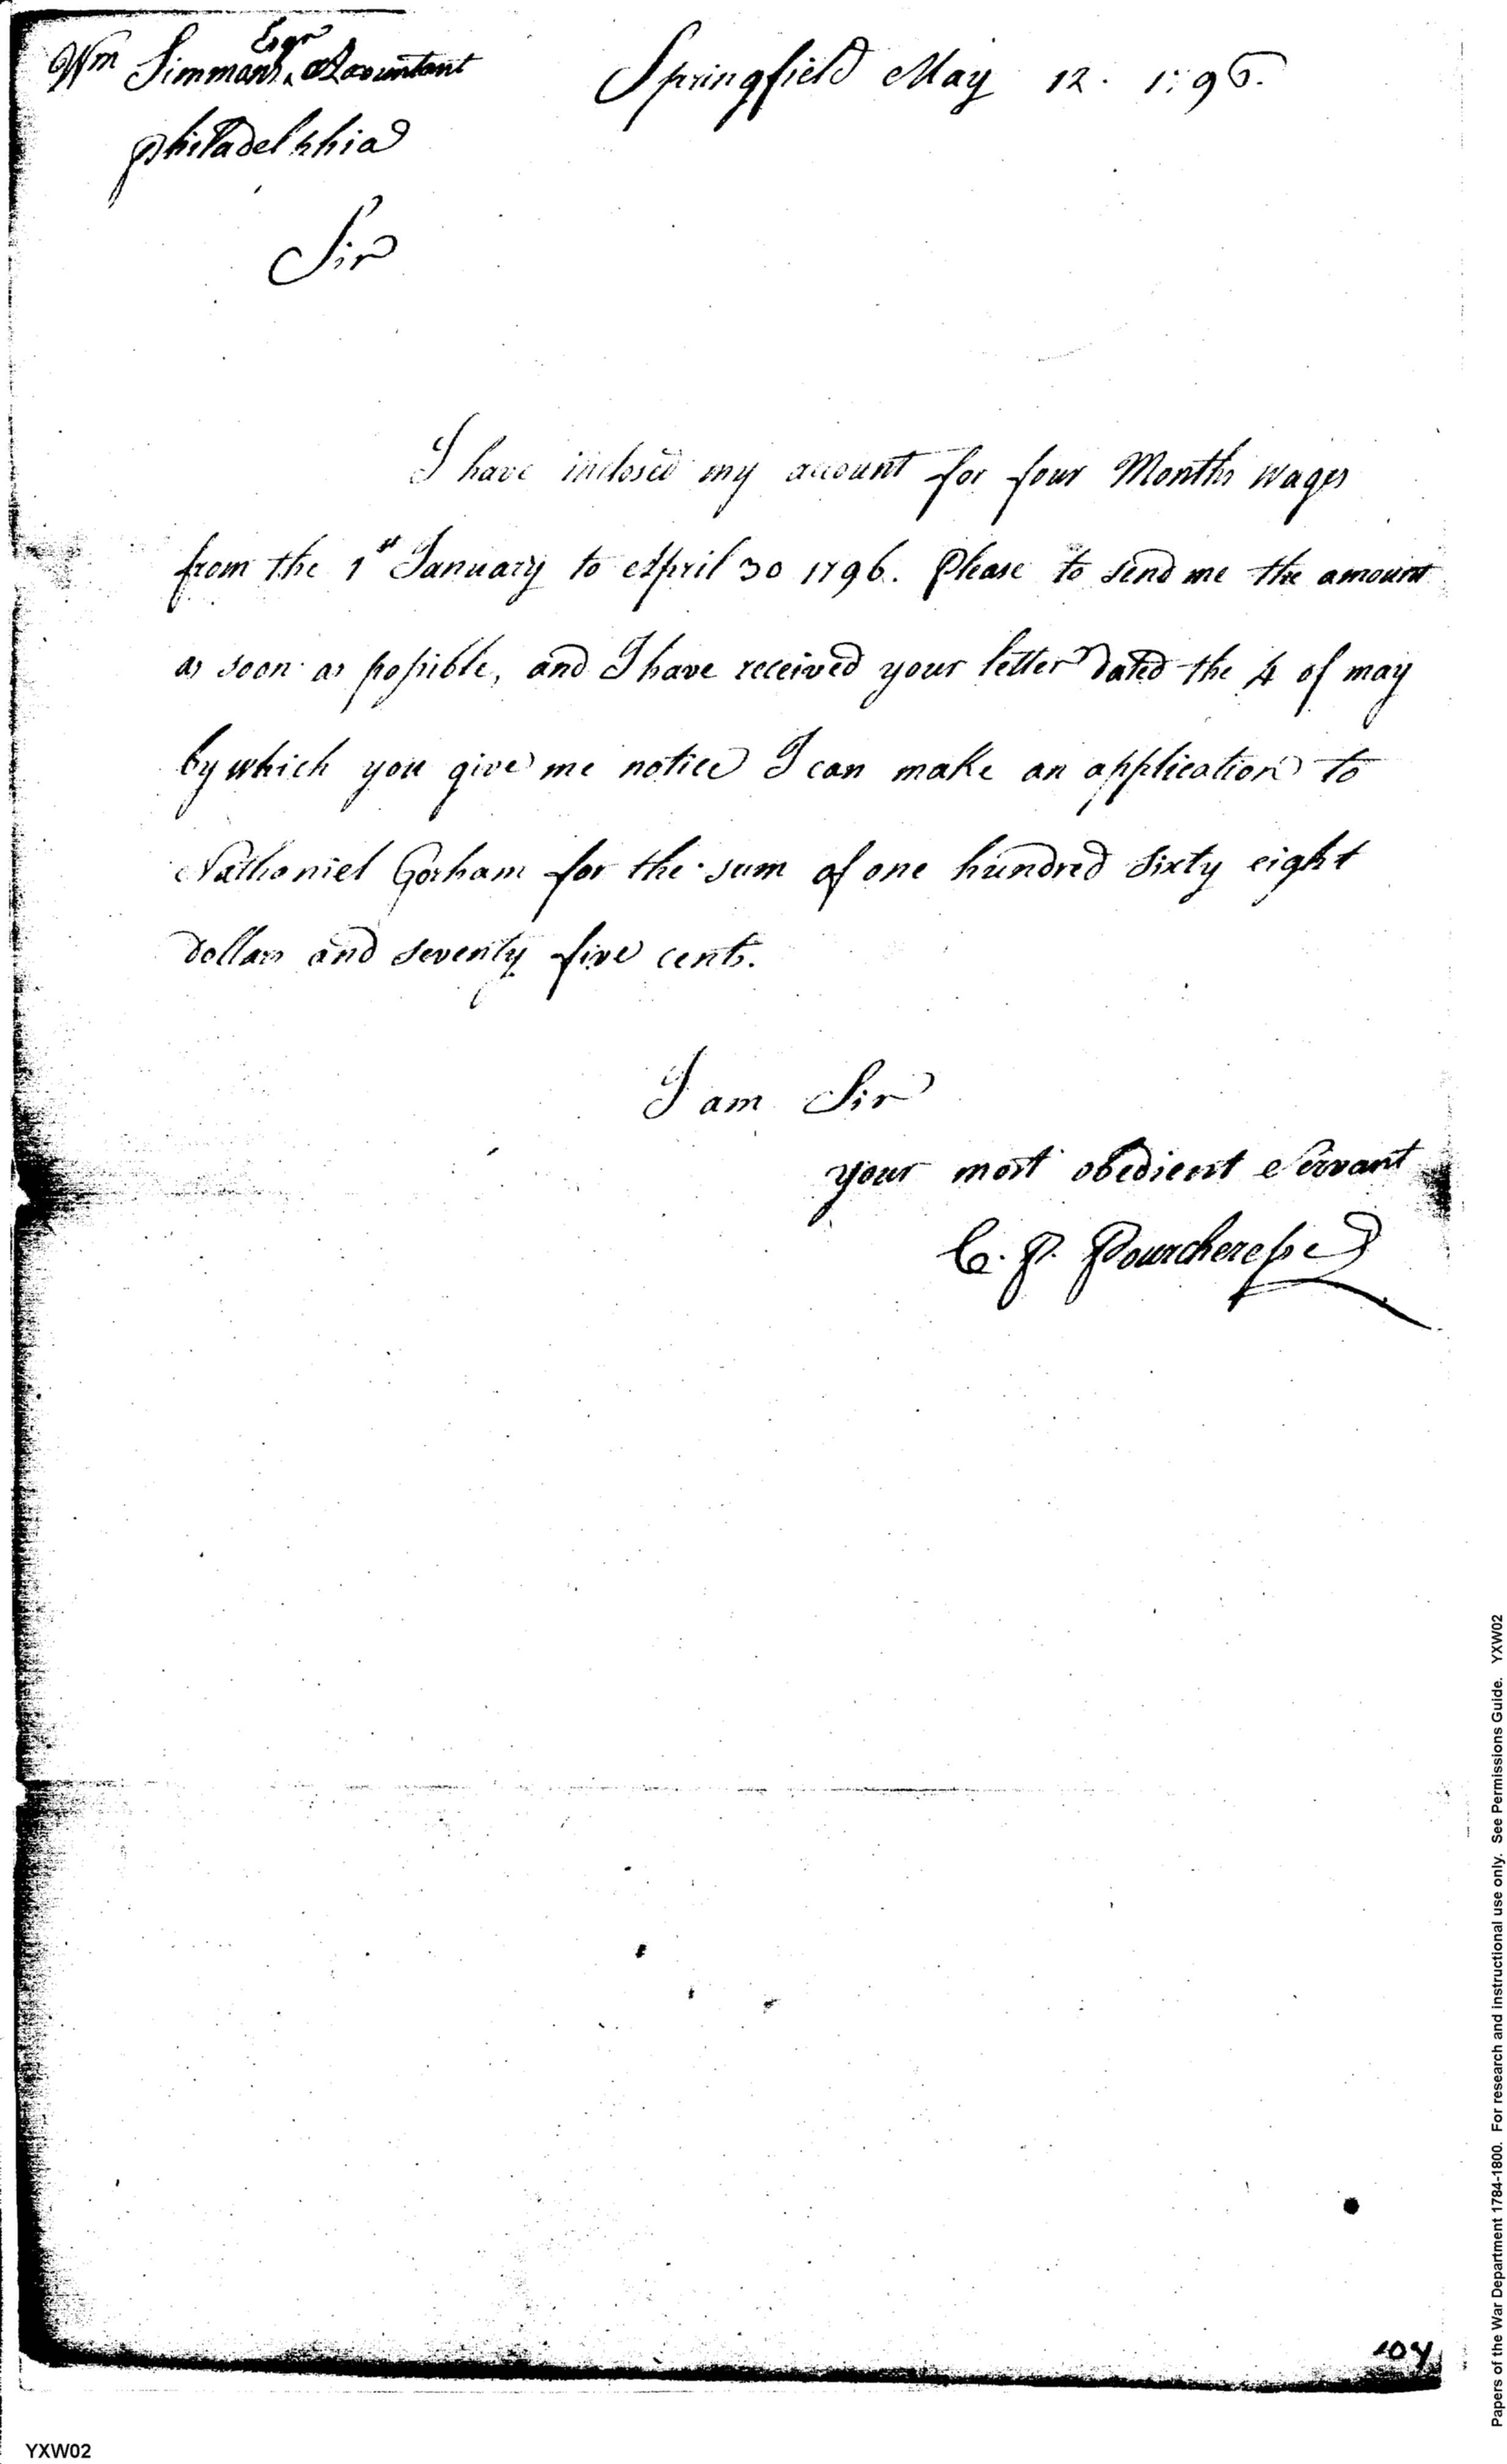 Wm Simmons Esqr Accountant
Springfield May 12. 1796.
Philadelphia
Sir
I have inclosed my account for four Months wages
from the 1st January to April 30 1796. Please to send me the amount
as soon as possible, and I have received your letter dated the 4 of may
by which you give me notice I can make an application to
Nathaniel Gorham for the sum of one hundred sixty eight
Dollars and seventy five cents.
I am Sir
your most obedient Servant
C. P. Pourcheresse
104
YXW02
Papers of the War Department 1784-1800. For research and instructional use only. See Permissions Guide. YXW02